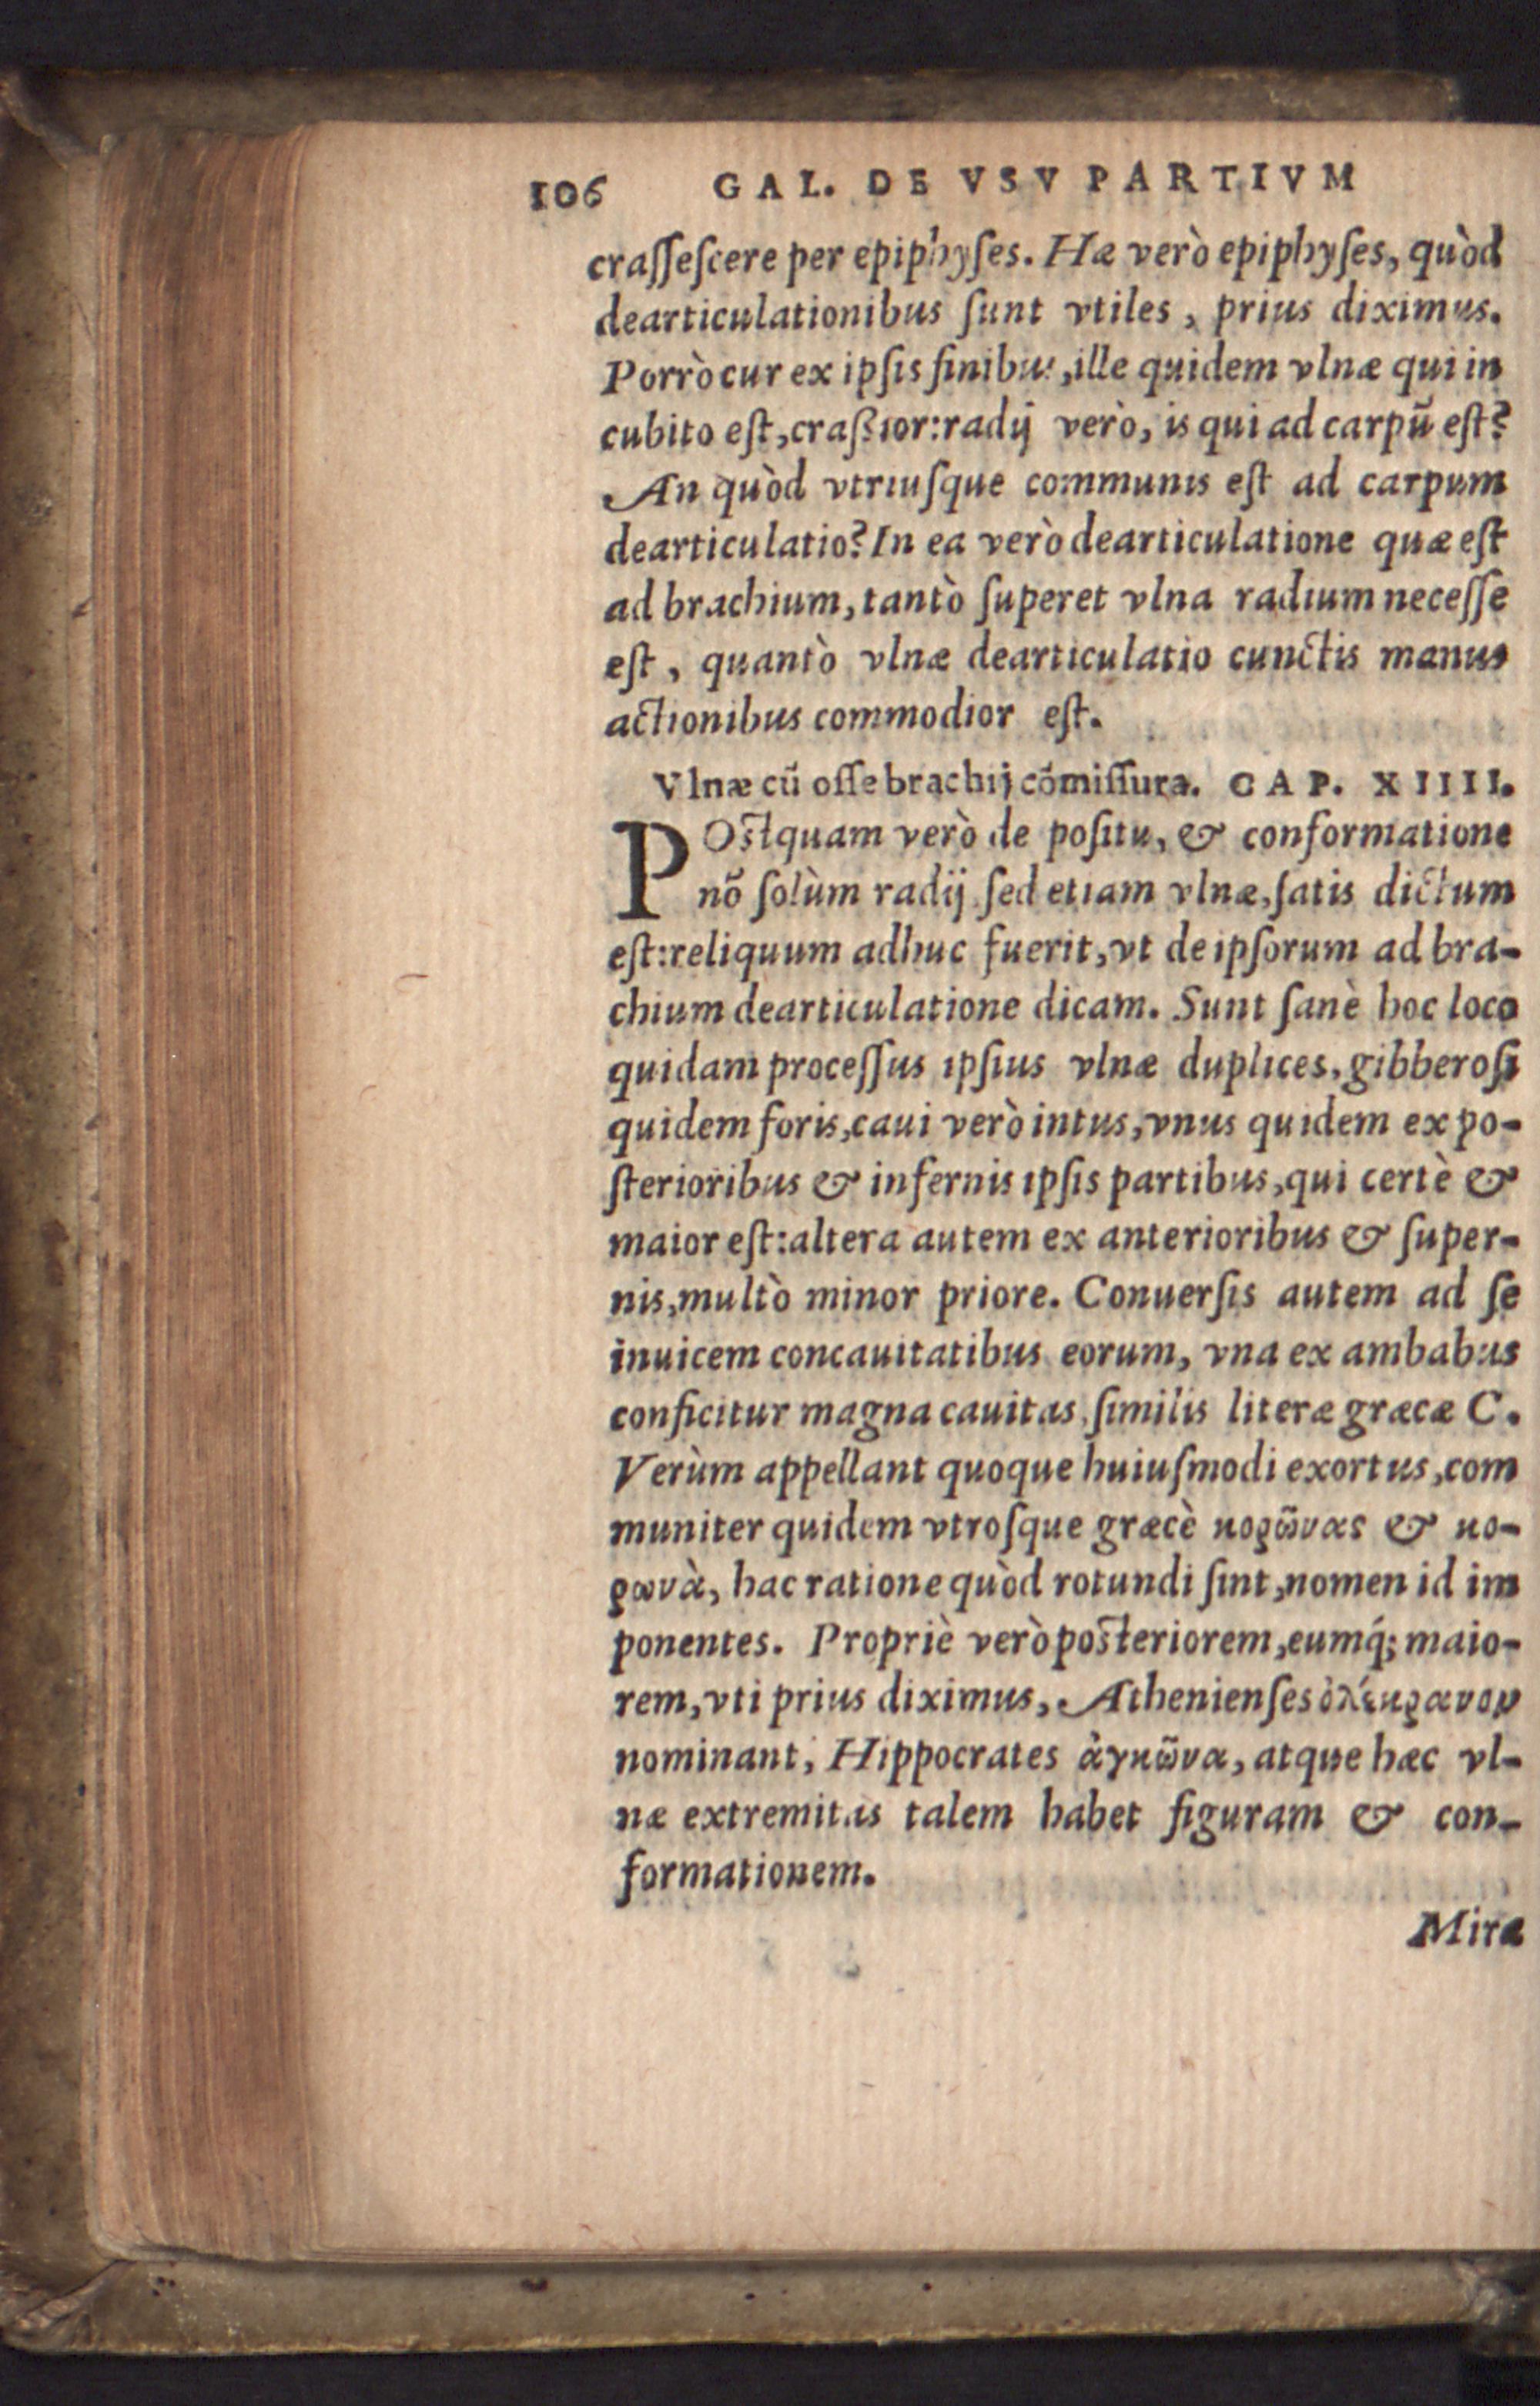 106 GAL. DE VSV PARTIVM
craſſeſcere per epiphyſes. Hæ verò epiphyſes, quòd
dearticulationibus ſunt vtiles, prius diximus.
Porrò cur ex ipſis finibus, ille quidem vlnæ qui in
cubito eſt, craßior: radij verò, is qui ad carpũ eſt?
An quòd vtriuſque communis eſt ad carpum
dearticulatio? In ea verò dearticulatione quæ eſt
ad brachium, tantò ſuperet vlna radium neceſſe
eſt, quantò vlnæ dearticulatio cunctis manus
actionibus commodior eſt.
Vlnæ cũ oſſe brachij cõmiſſura. CAP. XIIII.
POſtquam verò de poſitu, & conformatione
nõ ſolùm radij ſed etiam vlnæ, ſatis dictum
eſt: reliquum adhuc fuerit, vt de ipſorum ad bra-
chium dearticulatione dicam. Sunt ſanè hoc loco
quidam proceſſus ipſius vlnæ duplices, gibberoſi
quidem foris, caui verò intus, vnus quidem ex po-
ſterioribus & infernis ipſis partibus, qui certè &
maior eſt: altera autem ex anterioribus & ſuper-
nis, multò minor priore. Conuerſis autem ad ſe
inuicem concauitatibus eorum, vna ex ambabus
conficitur magna cauitas, ſimilis literæ græcæ C.
Verùm appellant quoque huiuſmodi exortus, com
muniter quidem vtroſque græcè κορῶνας & κο-
ρωνὰ, hac ratione quòd rotundi ſint, nomen id im
ponentes. Propriè verò poſteriorem, eumq́; maio-
rem, vti prius diximus, Athenienſes ὀλέκρανον
nominant, Hippocrates ἀγκῶνα, atque hæc vl-
næ extremitas talem habet figuram & con-
formationem.
Miræ